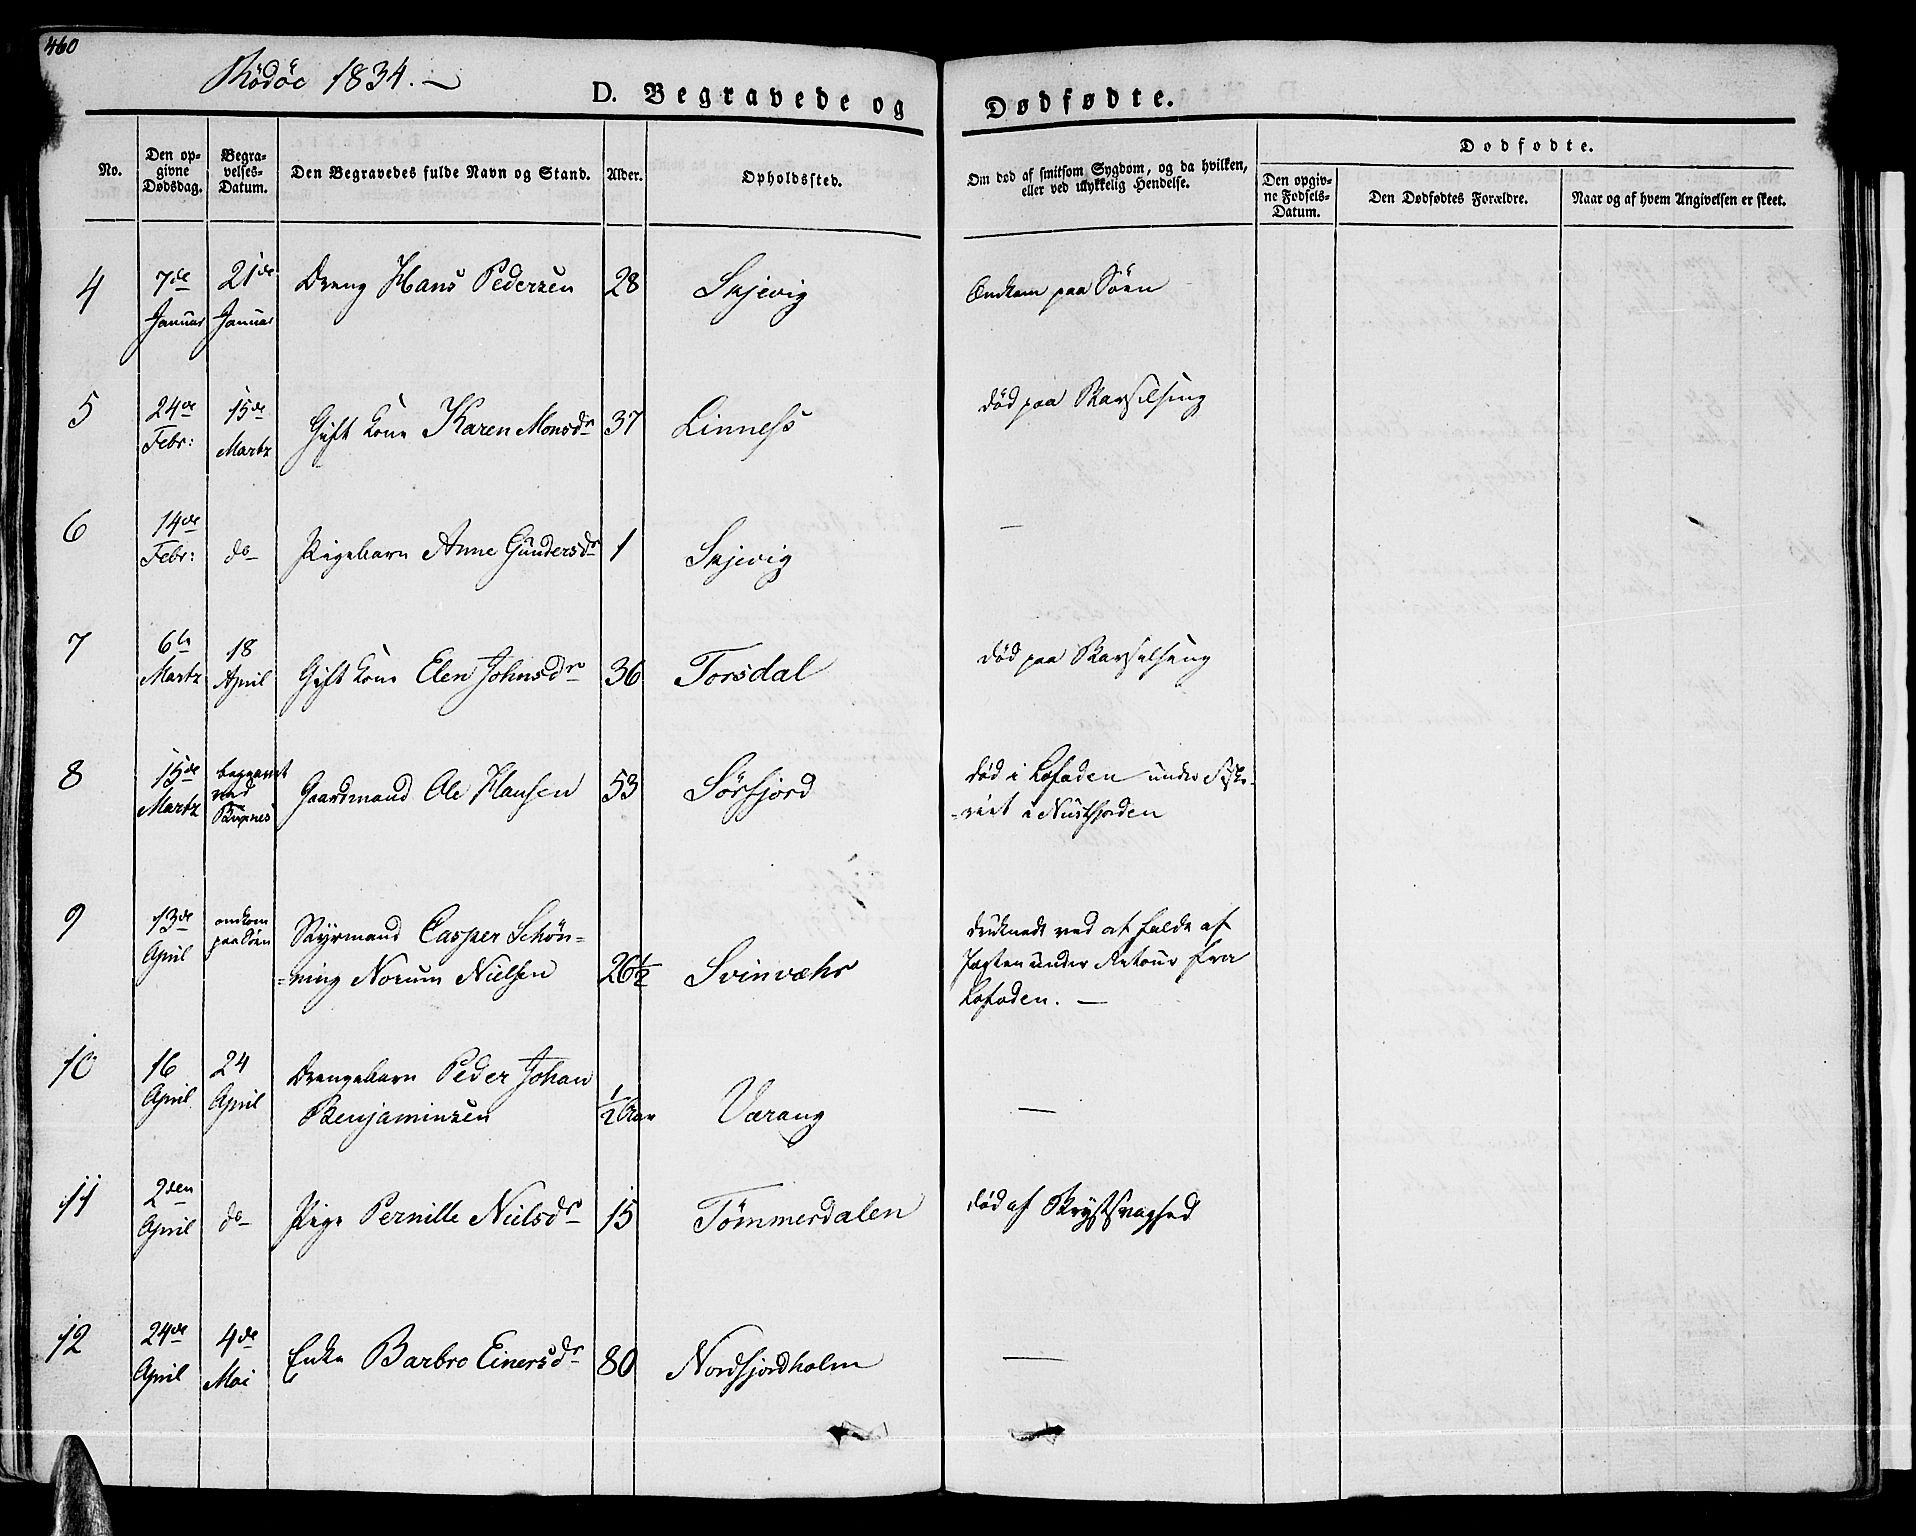 460
Rödöe 1834. —
D. Begravede og Dødfødte.
No.
Den opgivne Dødsdag.
Begravelses-Datum.
Den Begravedes fulde Navn og Stand.
Alder.
Opholdssted.
Om død af smitsom Sygdom, og da hvilken, eller ved ulykkelig Hendelse.
Dødfødte.
Den opgivne Fødsels-Datum.
Den Dødfødtes Forældre.
Naar og af hvem Angivelsen er skeet.
4 7de Januar 21de Januar Dreng Hans Pedersen 28 Skjevig Omkom paa Söen
5 24de Febr: 15de Martz Gift Kone Karen Monsdr 37 Linness död paa Barselseng
6 14de Febr: do Pigebarn Anne Gundersdr 1 Skjevig —
7 6te Martz 18 April Gift Kone Elen Johnsdr 36 Torsdal död paa Barselseng
8 15de Martz begravet ved Buxnes Gaardmand Ole Hansen 53 Sörfjord död i Lofoden under Fiske-
riet i Nusfjorden
9 13de April omkom paa Söen Styrmand Casper Schön-
ning Norum Nielsen 26½ Svinvæhr druknede ved at falde af
Jagten under Retour fra
Lofoden. —
10 16 April 24 April Drengebarn Peder Johan
Benjaminsen ½ Aar Værang —
11 2den April do Pige Pernille Nielsdr 15 Tömmerdalen död af Brystsvaghed
12 24de April 4de Mai Enke Barbro Einersdr 80 Nordfjordholm —